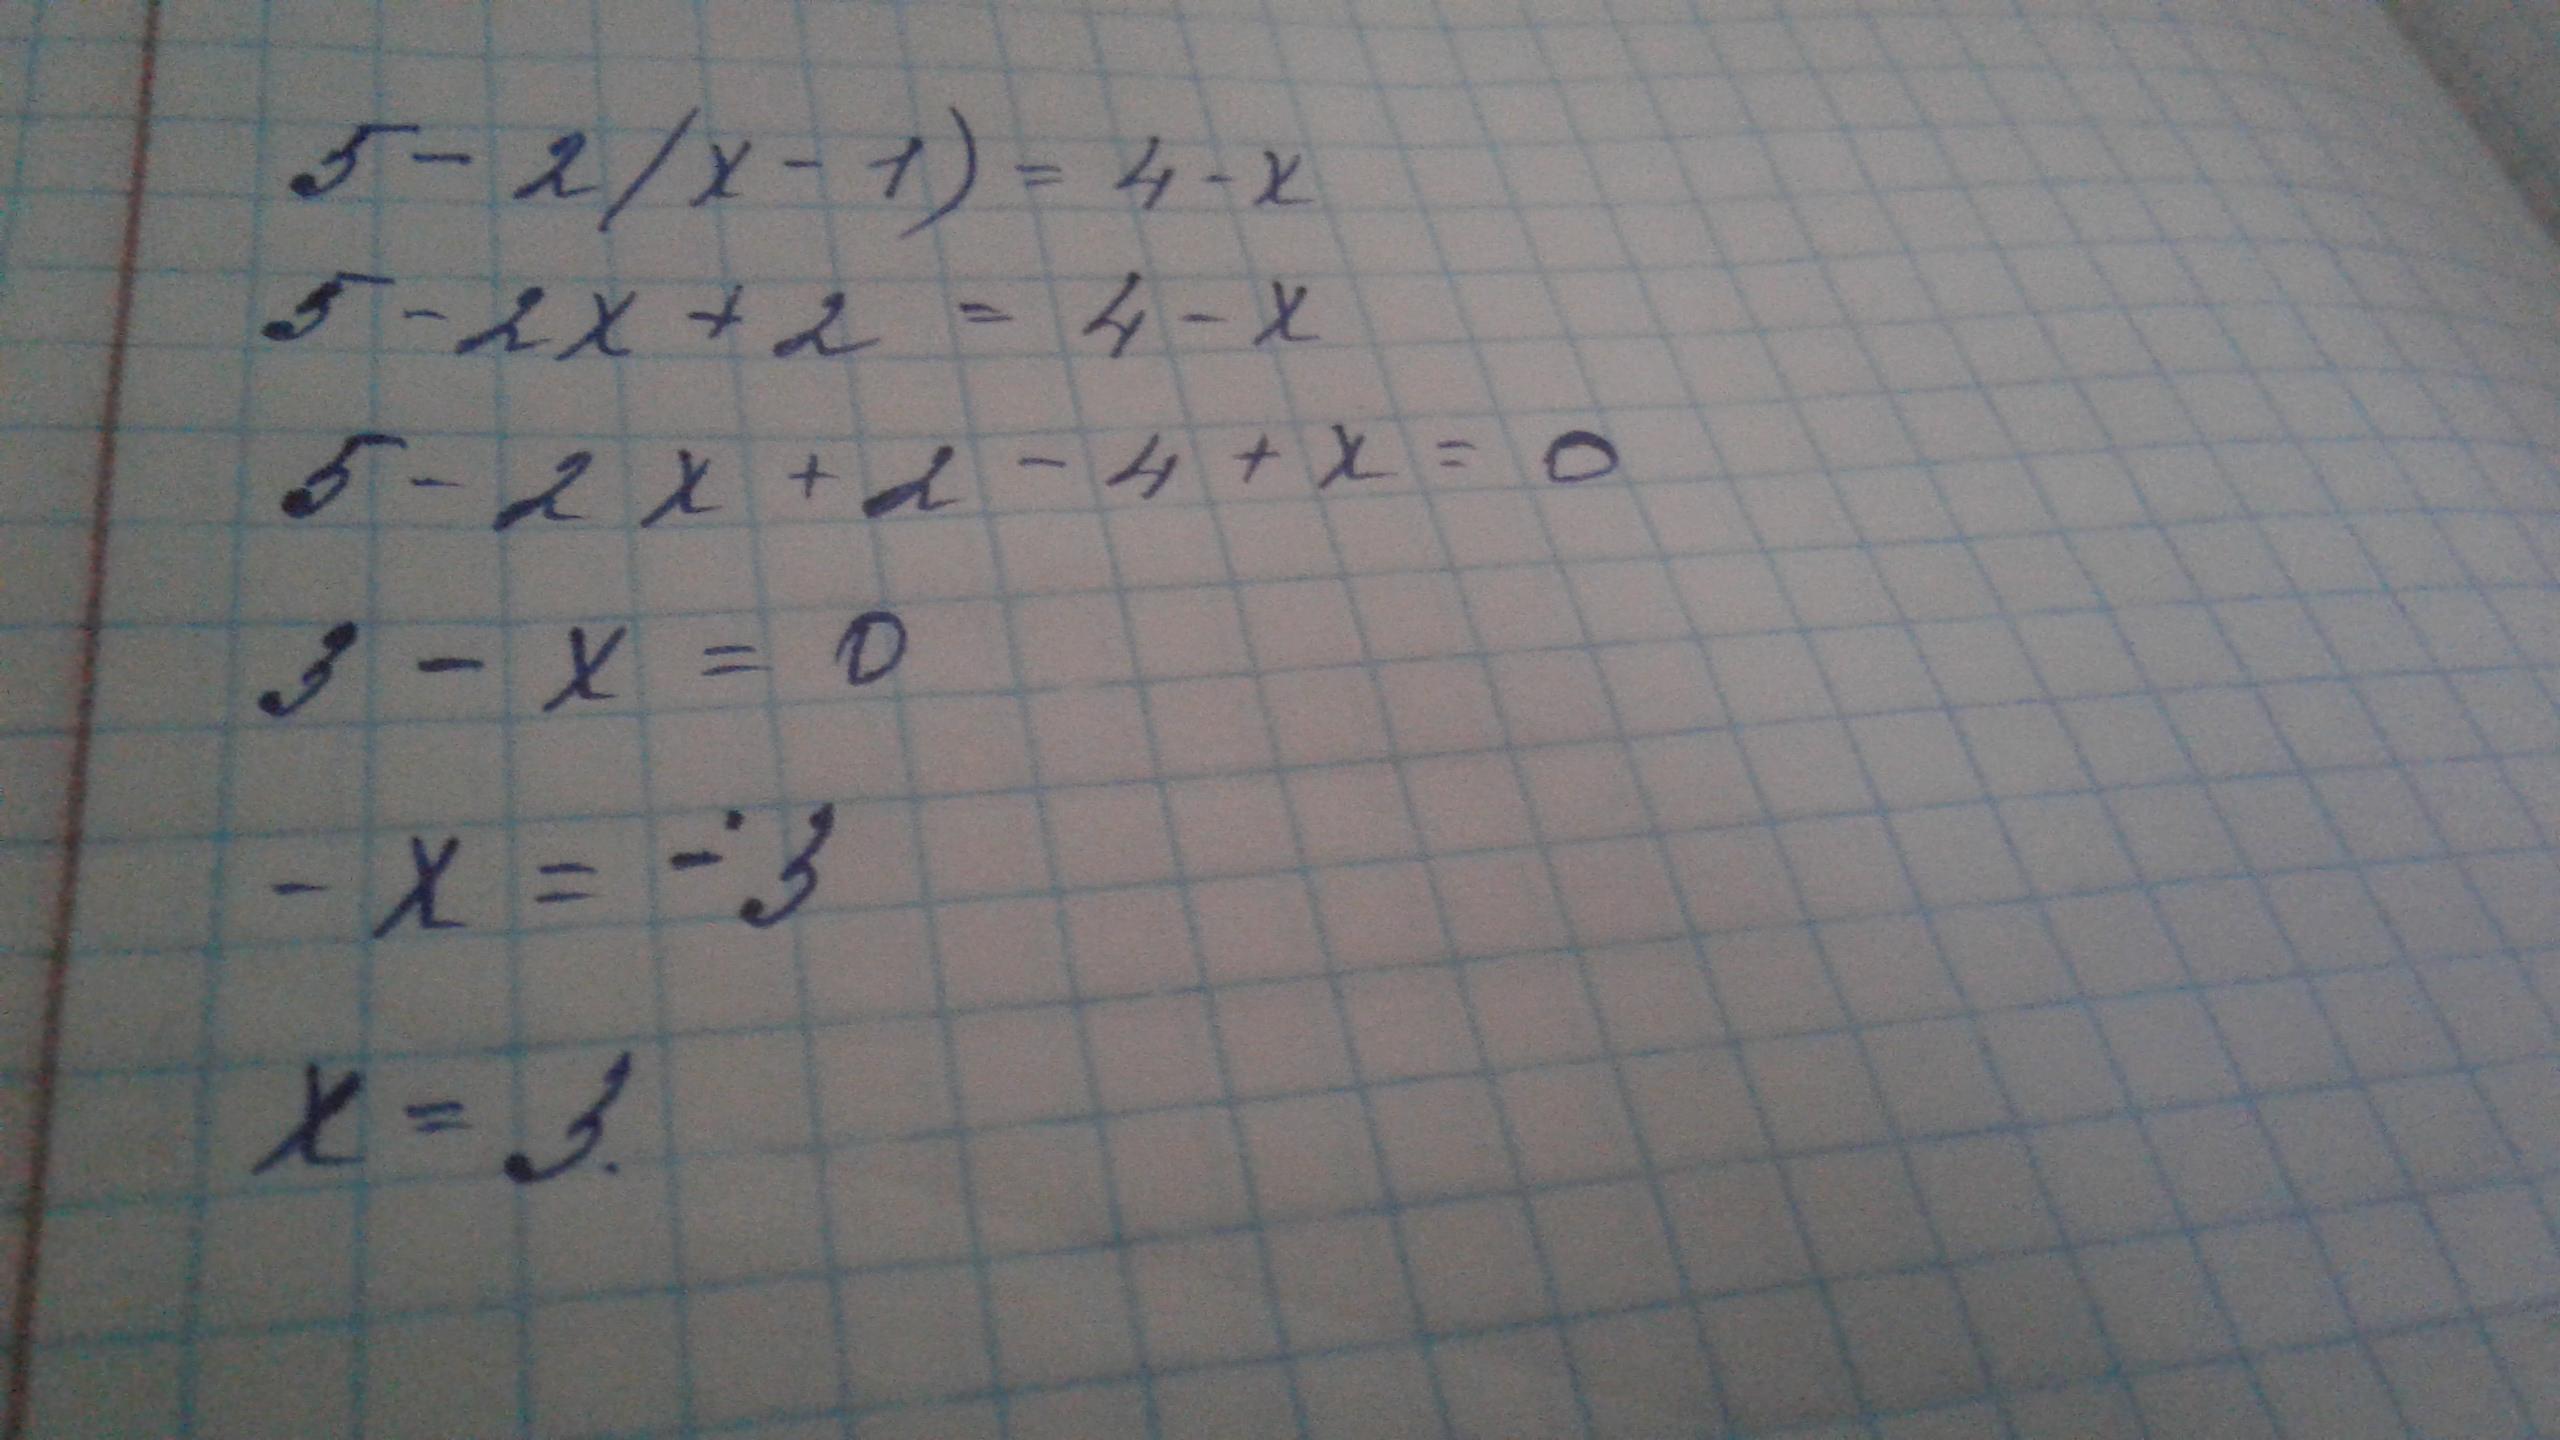 5 - 2(x - 1) = 4 - x
5 - 2x + 2 = 4 - x
5 - 2x + 2 - 4 + x = 0
3 - x = 0
- x = - 3
x = 3.